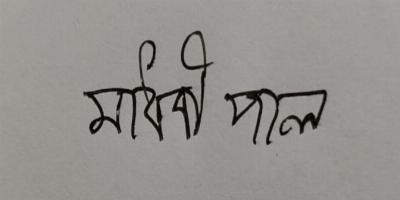 মাধবী পাল